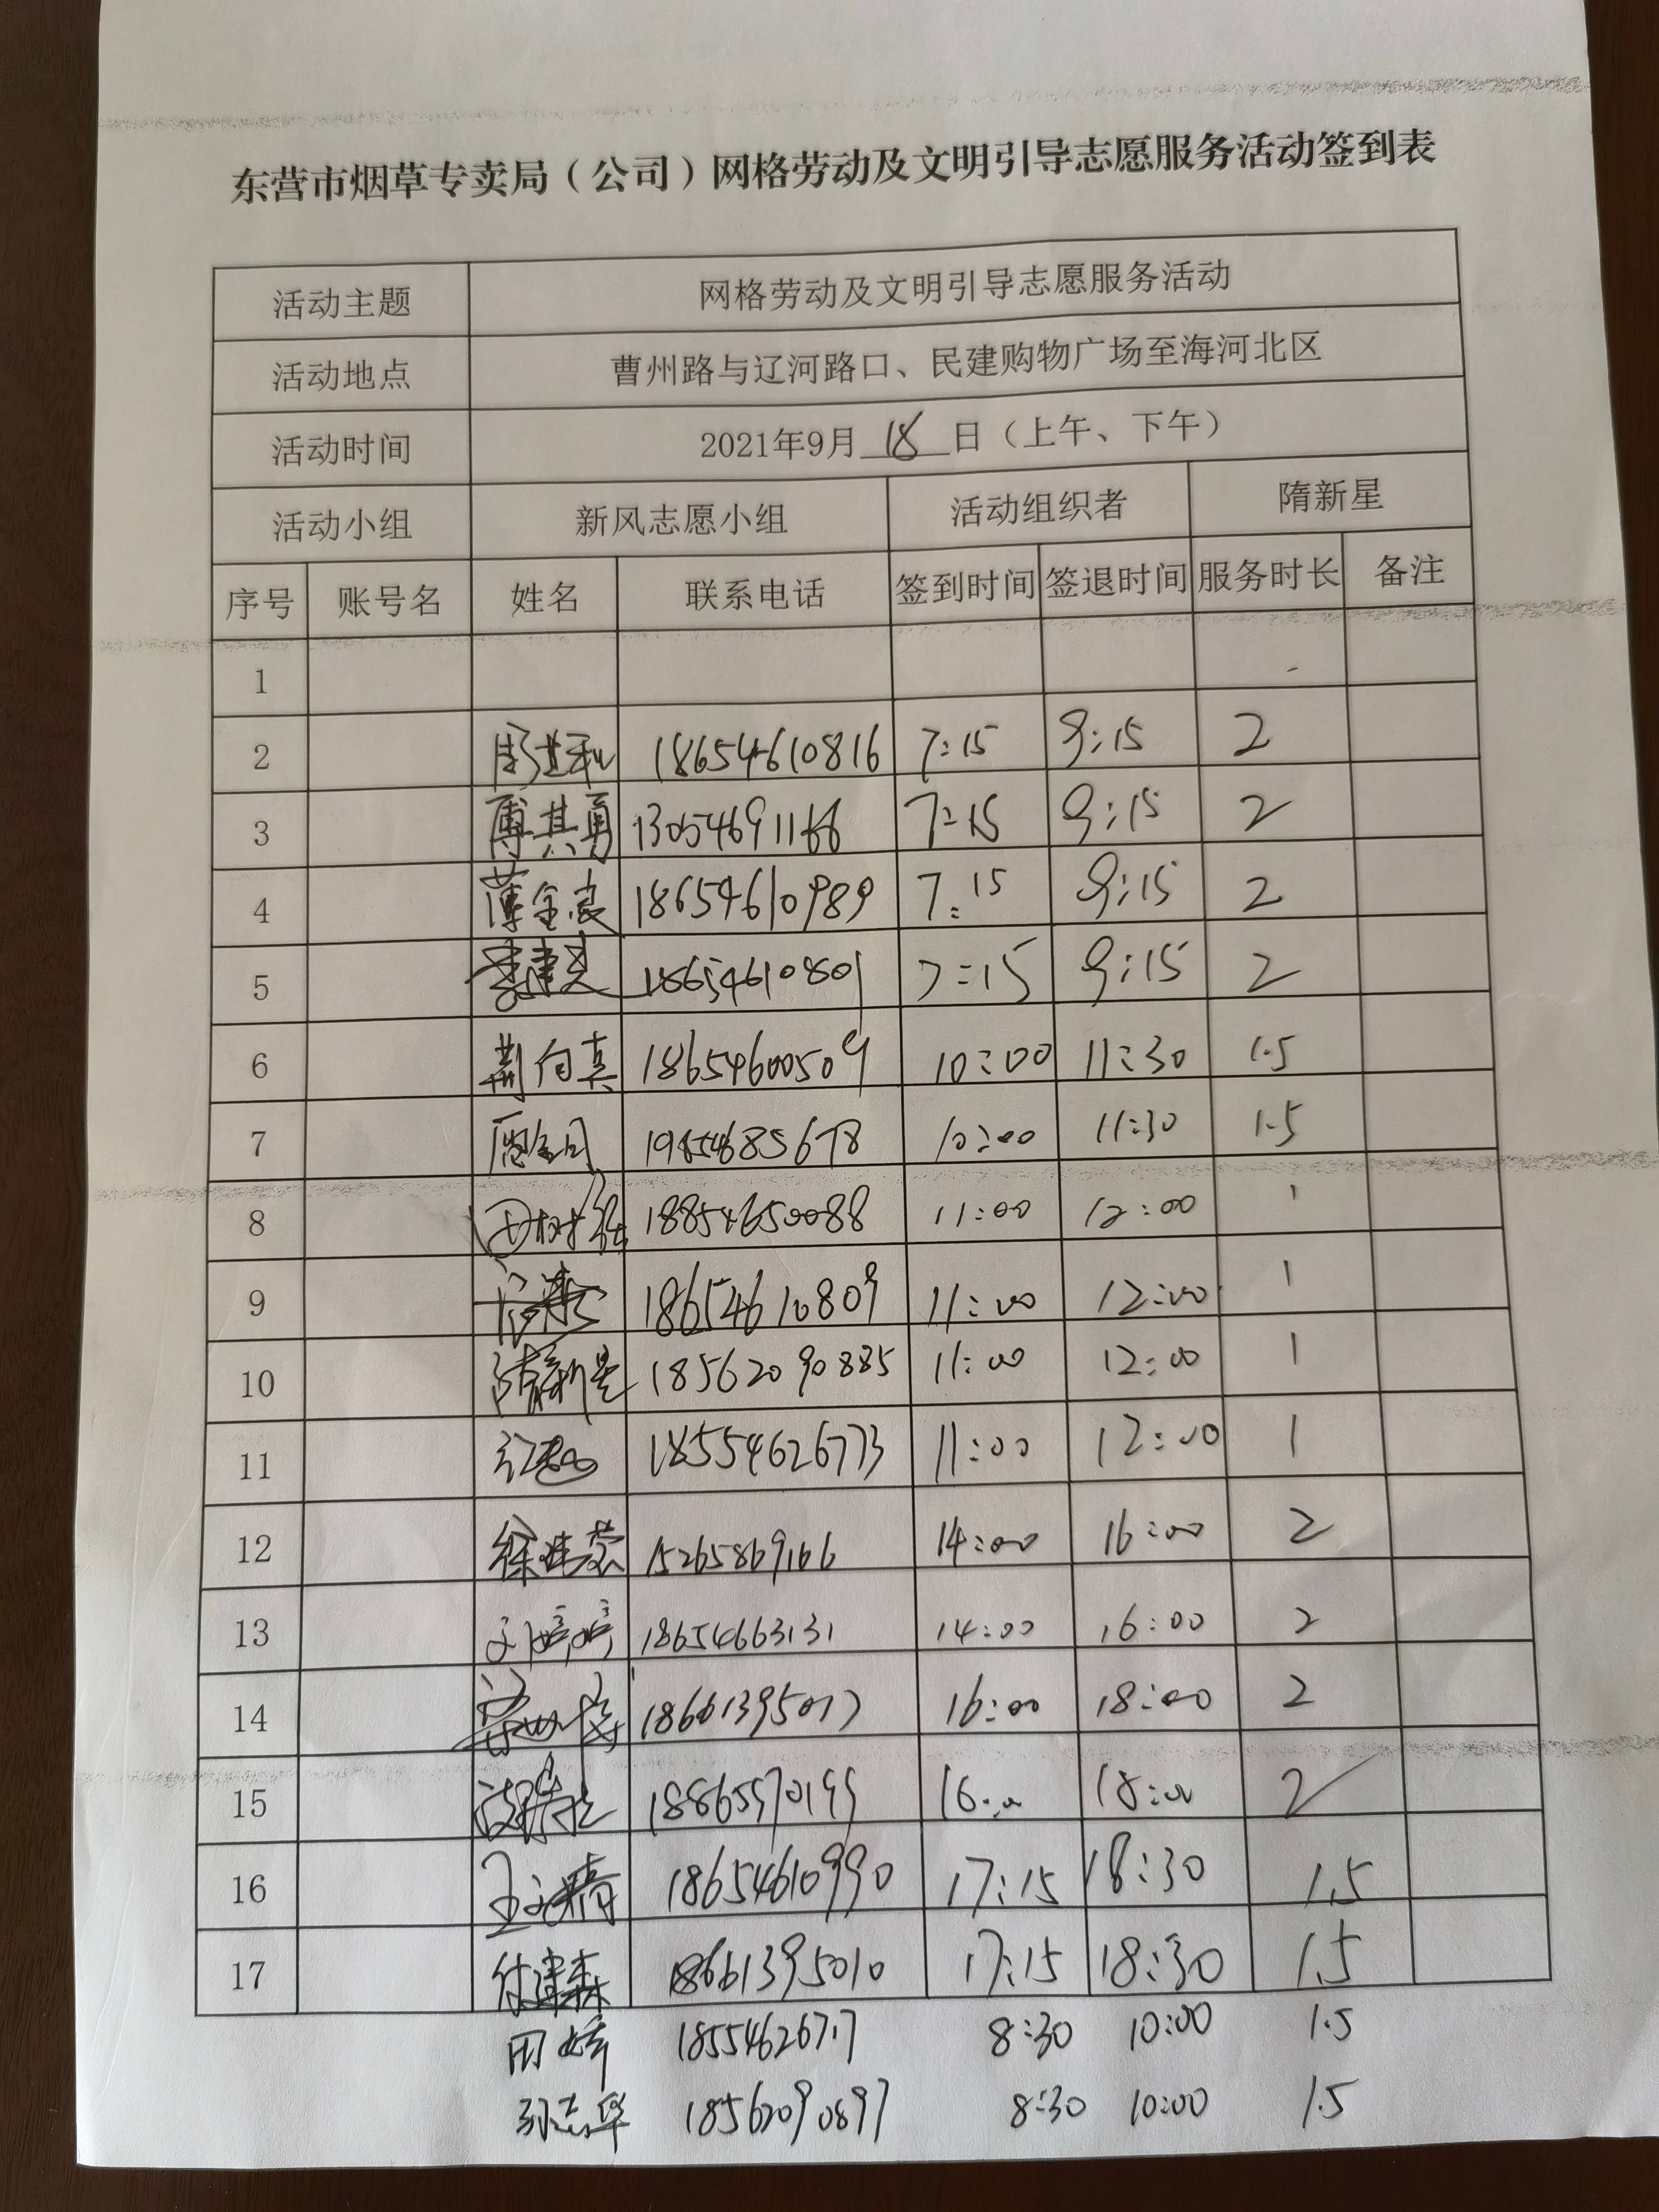 东营市烟草专卖局（公司）网格劳动及文明引导志愿服务活动签到表
活动主题 网格劳动及文明引导志愿服务活动
活动地点 曹州路与辽河路口、民建购物广场至海河北区
活动时间 2021年9月18日（上午、下午）
活动小组 新风志愿小组 活动组织者 隋新星
序号 账号名 姓名 联系电话 签到时间 签退时间 服务时长 备注
1
2 18654610816 7:15 9:15 2
3 傅其勇 13054691166 7:15 9:15 2
4 薄金良 18654610989 7:15 9:15 2
5 18654610801 7:15 9:15 2
6 荆向真 18654600509 10:00 11:30 1.5
7 19854685678 10:00 11:30 1.5
8 18854650088 11:00 12:00 1
9 18654610809 11:00 12:00 1
10 隋新星 18562090885 11:00 12:00 1
11 18554626773 11:00 12:00 1
12 15265869166 14:00 16:00 2
13 刘婷婷 18654663131 14:00 16:00 2
14 18661395017 16:00 18:00 2
15 18865970199 16:00 18:00 2
16 18654610990 17:15 18:30 1.5
17 付建森 18661395010 17:15 18:30 1.5
田婷 18554626717 8:30 10:00 1.5
孙志华 18562090897 8:30 10:00 1.5